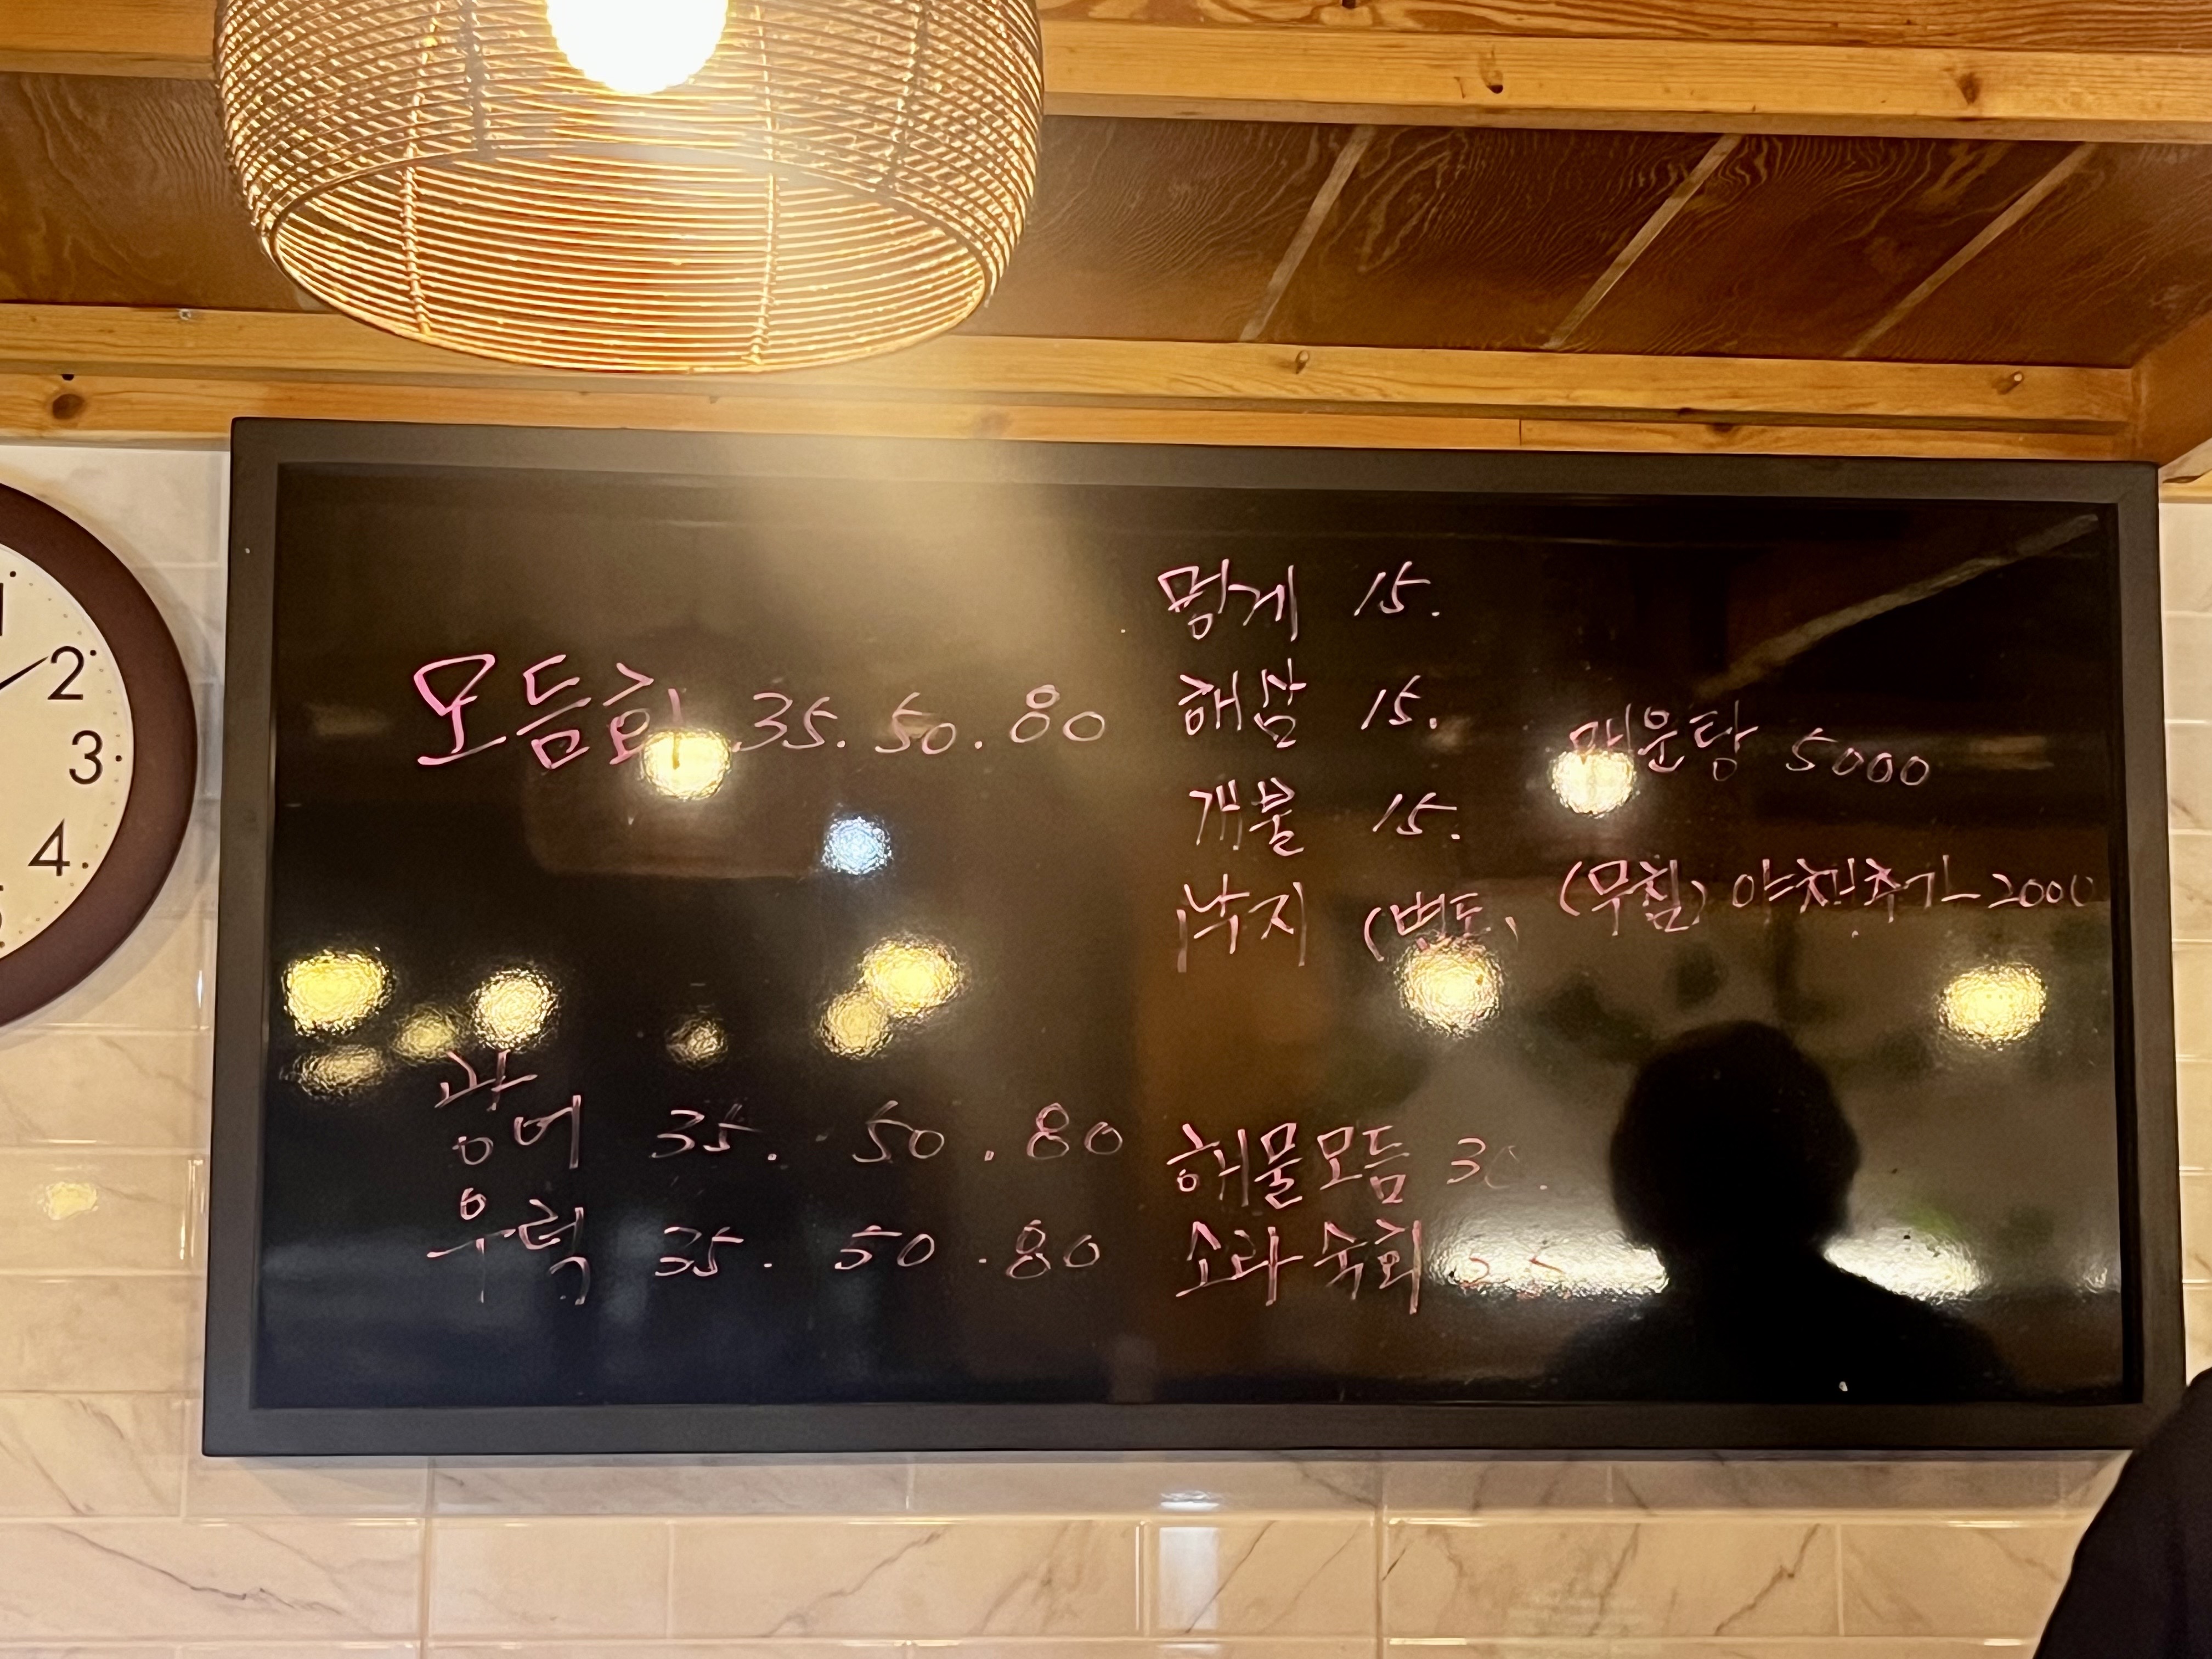 모듬회 35. 50. 80
광어 35. 50. 80
우럭 35. 50. 80
멍게 15.
해삼 15.
개불 15.
낙지 (변도)
해물모듬 30.
소라숙회
매운탕 5000
(무침) 야채추가 2000
2
3
4